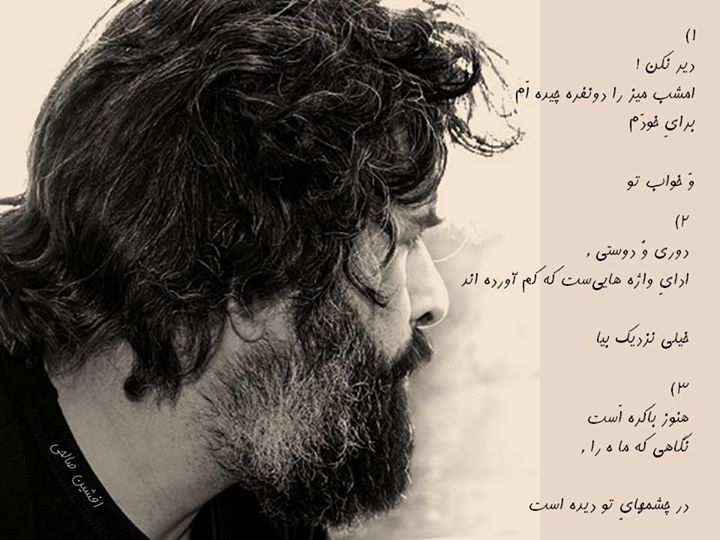 ۱)
دیر نکن !
امشب میز را دونفره چیده اَم
برایِ خودَم
وَ خواب تو
۲)
دوری وَ دوستی ,
ادایِ واژه هایی‌ست که کم آورده اند
خیلی نزدیک بیا
۳)
هنوز باکره اَست
نگاهی که ماه را ,
در چشمهایِ تو دیده است
افشین صالحی